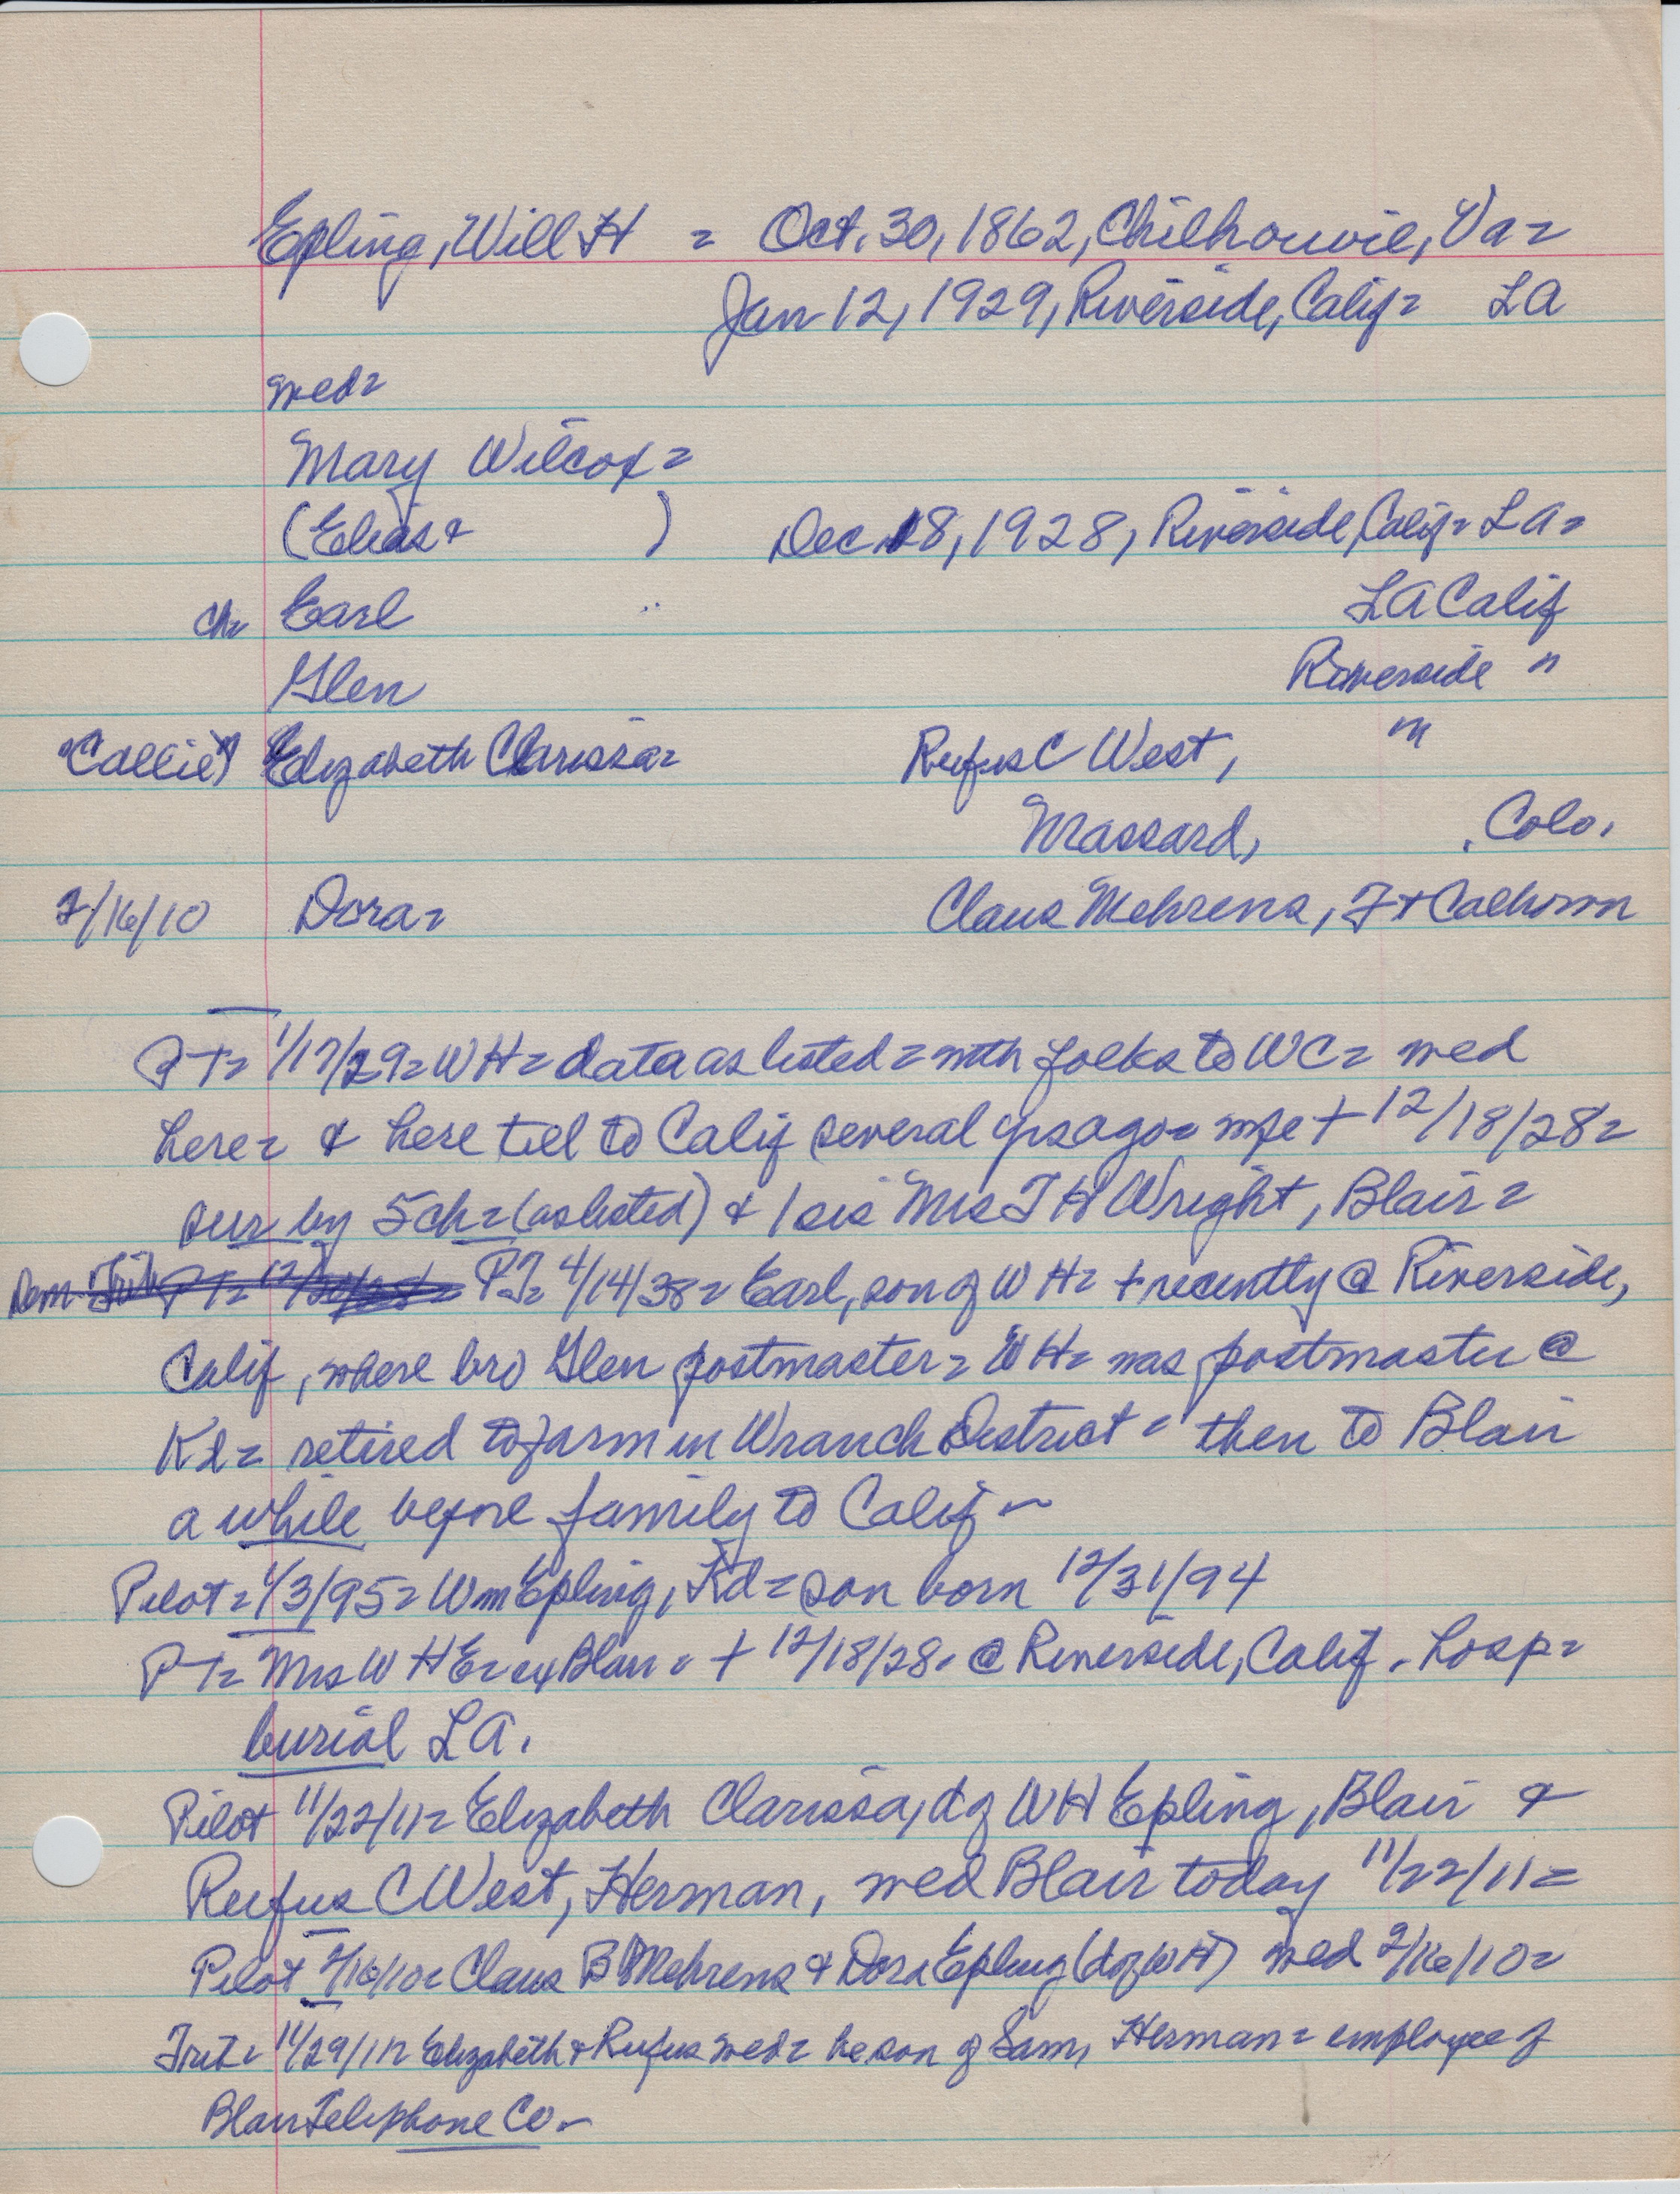 Epling, Will H = Oct. 30, 1862, Chilhowie, Va =
Jan 12, 1929, Riverside, Calif = LA
wed =
Mary Wilcox =
(Elias + ) Dec 18, 1928, Riverside, Calif = LA =
ch = Earl LA Calif
Glen Riverside "
"Callie") Elizabeth Clarissa = Rufus C West, "
Massard, , Colo.
2/16/10 Dora = Claus Mehrens, Ft Calhoun
PT = 1/17/29 = WH = data as listed = with folks to WC = wed
here = & here till to Calif several yrs ago = wife + 12/18/28 =
sur by 5 ch = (as listed) & 1 sis Mrs T H Wright, Blair =
Dem. PT = 4/14/38 = Earl, son of WH = + recently @ Riverside,
Calif, where bro Glen postmaster = WH = was postmaster @
Kd = retired to farm in Wranch District = then to Blair
a while before family to Calif –
Pilot = 1/3/95 = Wm Epling, Kd = son born 12/31/94
PT = Mrs W H E = ex Blair = + 12/18/28. @ Riverside, Calif. hosp =
burial LA.
Pilot 11/22/11 = Elizabeth Clarissa, d of WH Epling, Blair &
Rufus C West, Herman, wed Blair today 11/22/11 =
Pilot 2/16/10 = Claus B Mehrens & Dora Epling (d of WH) wed 2/16/10 =
Trib = 11/29/11 = Elizabeth & Rufus wed = he son of Sam, Herman = employee of
Blair Telephone Co –